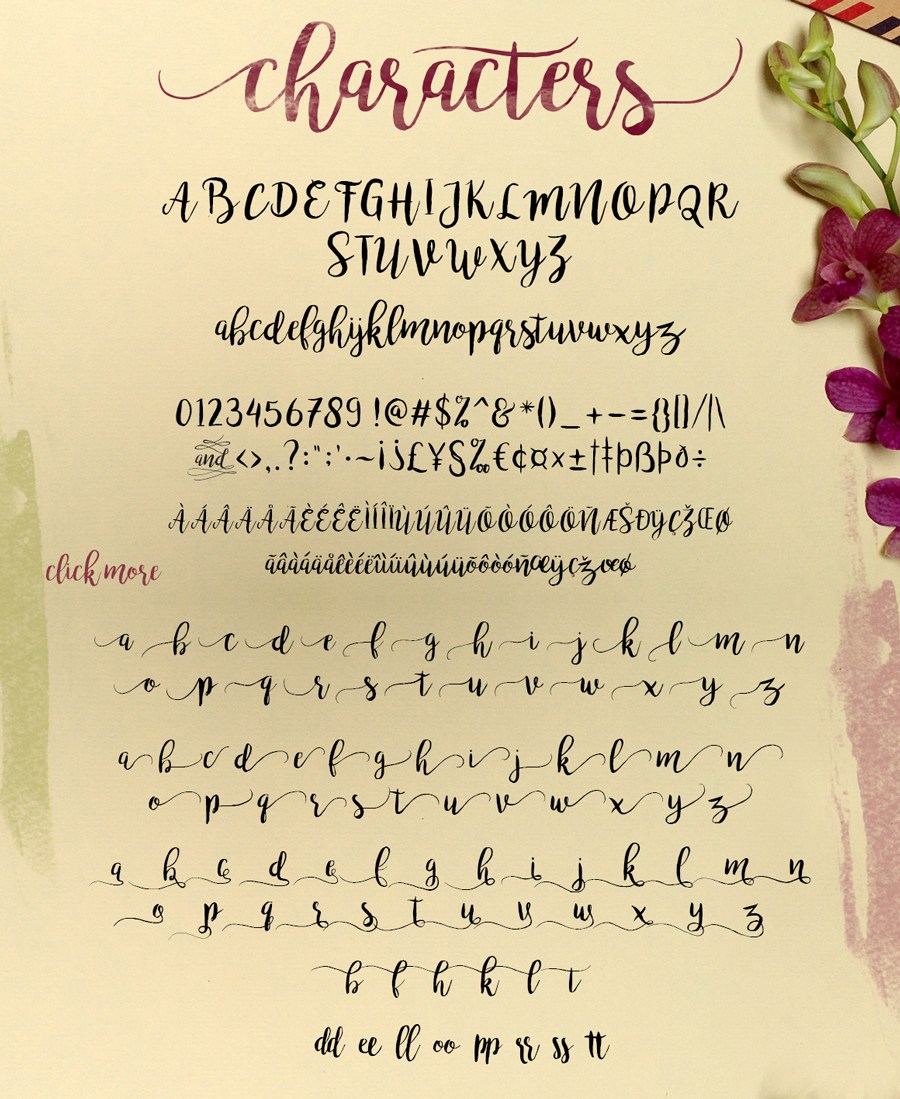 characters
ABCDEFGHIJKLMNOPQR
STUVWXYZ
abcdefghijklmnopqrstuvwxyz
0123456789 !@#$%^&*()_+-={}[]/|\
and <>,.?:";'·~¡¿£¥§‰€¢¤×±†‡þßÞð÷
ÀÁÂÄÅÃÈÉÊËÌÍÎÏÙÚÛÜÕÒÓÔÖÑÆŠÐŸÇŽŒØ
ãâàáäåêèéëîìíïûùúüõôòóñœÿçžœø
click more
a b c d e f g h i j k l m n
o p q r s t u v w x y z
a b c d e f g h i j k l m n
o p q r s t u v w x y z
a b c d e f g h i j k l m n
o p q r s t u v w x y z
b f h k l t
dd ee ll oo pp rr ss tt